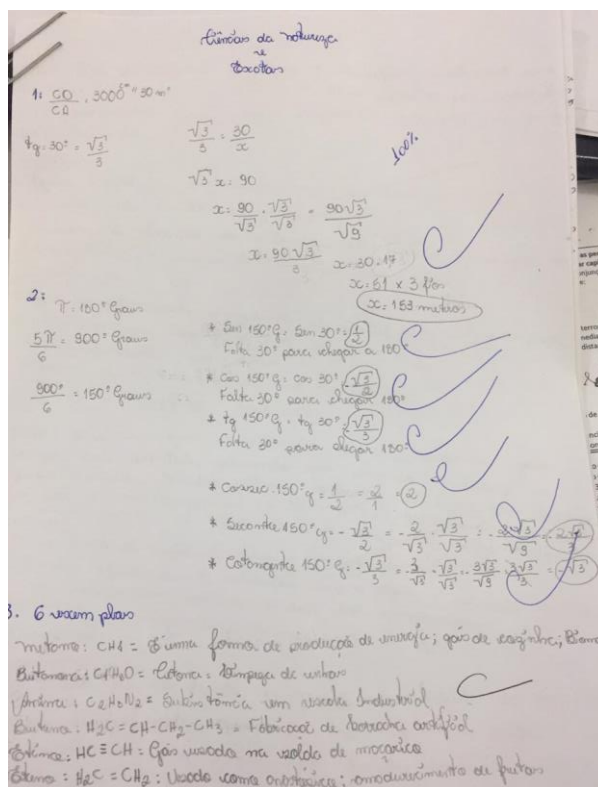 Ciências da natureza
e
Exatas
1: CO/CA = 3000 cm = 30 m
tg = 30° = √3/3
√3/3 = 30/x
√3 x = 90
x = 90/√3 · √3/√3 = 90√3/√9
x = 90√3/3 x = 30.17
x = 51 x 3 fios
x = 153 metros
100%
2:
π = 180° Graus
5π/6 = 900° Graus
900°/6 = 150° Graus
* Sen 150° G = Sen 30° = 1/2
Falta 30° para chegar a 180°
* Cos 150° G = cos 30° = -√3/2
Falta 30° para chegar 180°
* tg 150° G = tg 30° = -√3/3
Falta 30° para chegar 180°
* Cossec. 150° g = 1/2 = 2/1 = 2
* Secante 150° g = -√3/2 = -2/√3 · √3/√3 = -2√3/√9 = -2√3/3
* Cotangente 150° G = -√3/3 = -3/√3 · √3/√3 = -3√3/√9 = -3√3/3 = -√3
3. 6 exemplos
metano: CH4 = É uma forma de produção de energia; gás de cozinha;
= Limpeza de unhas
: C2H8N2 = Substância em escala Industrial
Buteno: H2C = CH-CH2-CH3 = Fabricação de borracha artificial
Etino: HC≡CH: Gás usado na solda de maçarico
Eteno: H2C = CH2: Usado como anestésico; amadurecimento de frutas